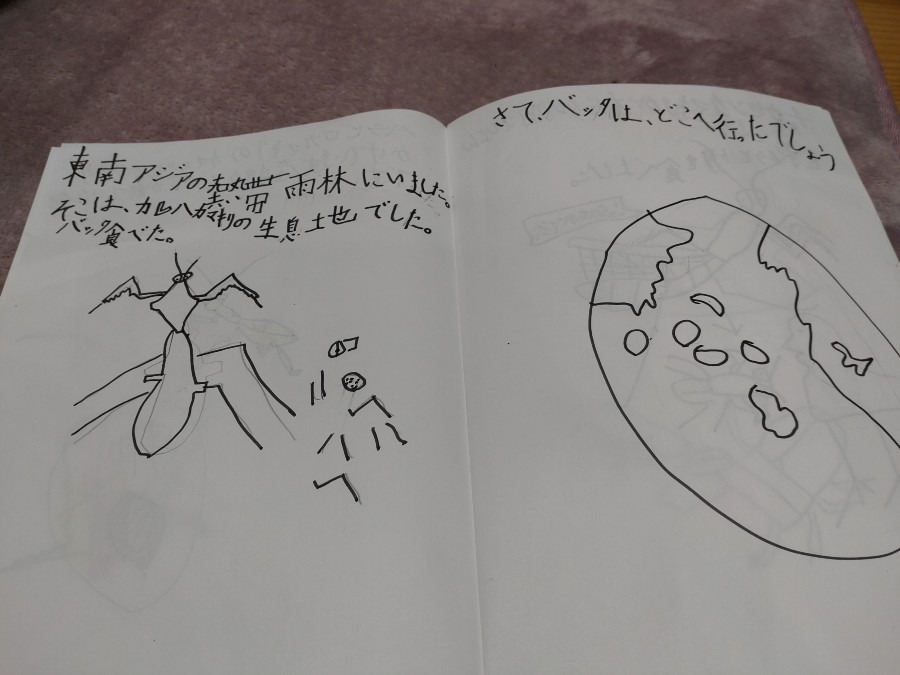 さて、バッタは、どこへ行ったでしょう
東南アジアの 雨林にいました。
そこは、カレハカマキリの生息地でした。
バッタ食べた。